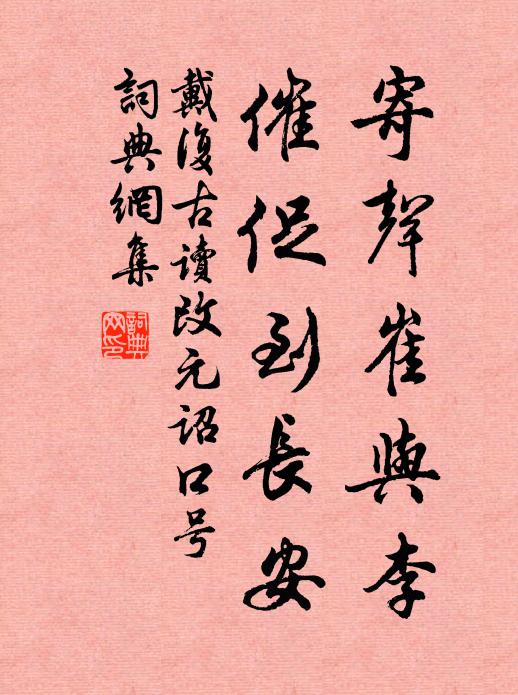 寄聲崔與李
催促到長安
戴復古讀改元詔口号
詞典網集
詞典網印